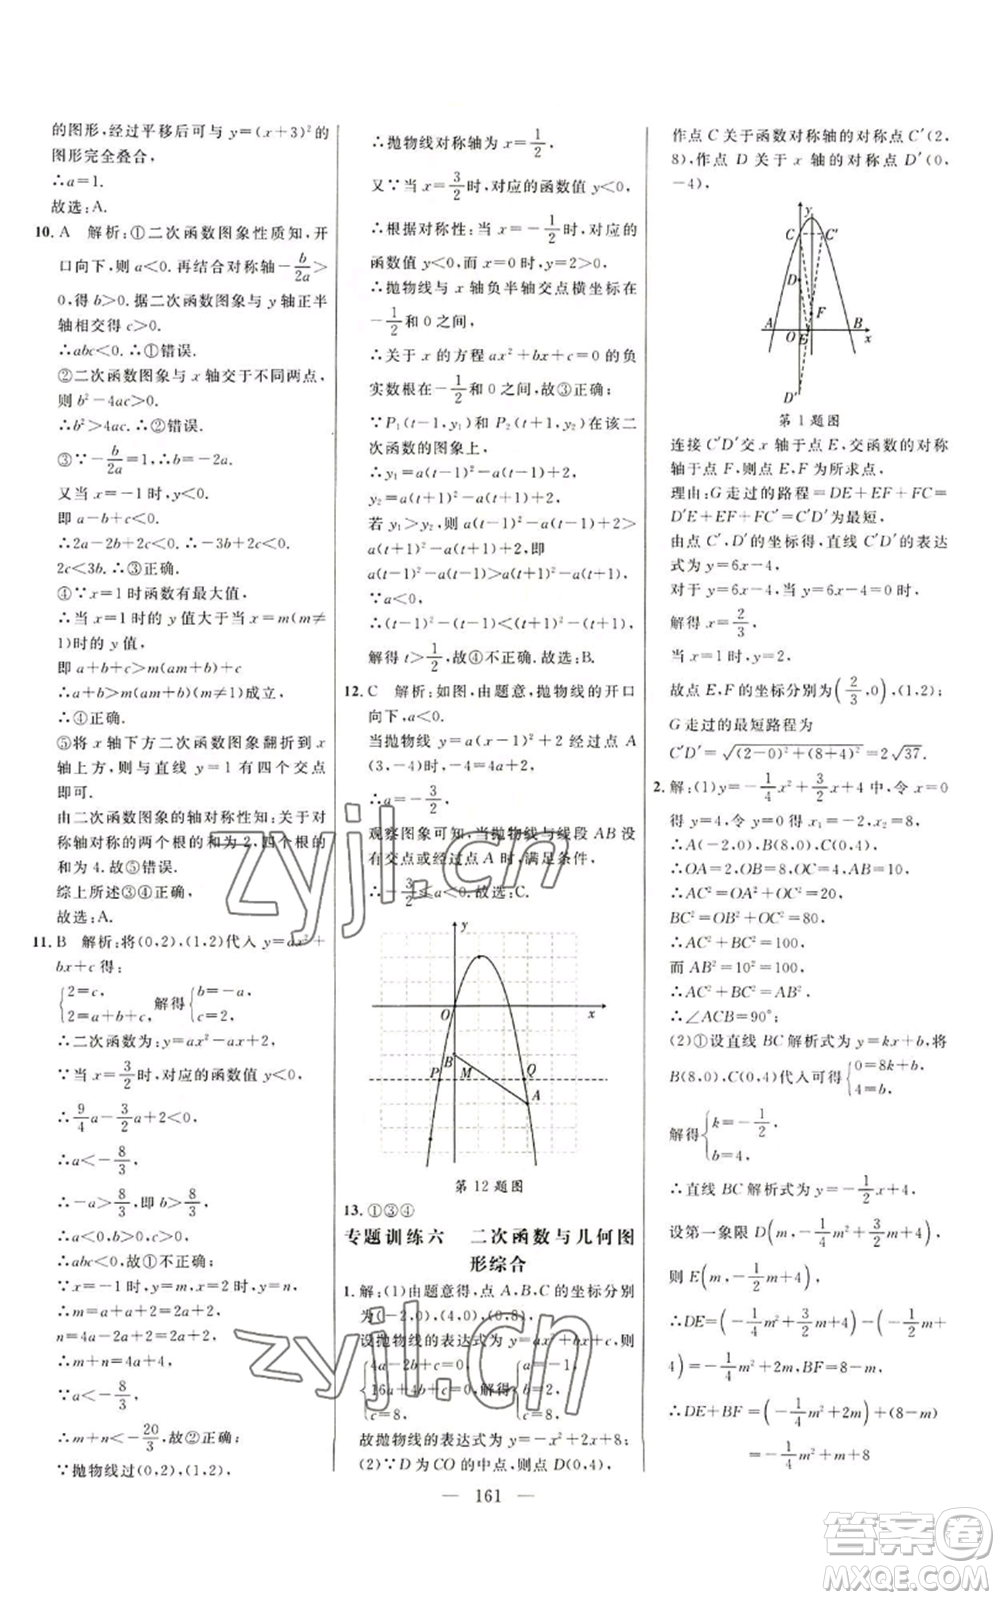 的图形,经过平移后可与 y=(x+3)²的
图形完全叠合,
∴a=1.
故选:A.
10. A 解析:①二次函数图象性质知,开
口向下,则 a<0. 再结合对称轴-b/2a>
0,得 b>0. 据二次函数图象与 y 轴正半
轴相交得 c>0.
∴abc<0. ∴①错误.
②二次函数图象与 x 轴交于不同两点,
则 b²-4ac>0.
∴b²>4ac. ∴②错误.
③∵-b/2a=1,∴b=-2a.
又当 x=-1 时,y<0.
即 a-b+c<0.
∴2a-2b+2c<0. ∴-3b+2c<0.
2c<3b. ∴③正确.
④∵x=1 时函数有最大值,
∴当 x=1 时的 y 值大于当 x=m(m≠
1)时的 y 值,
即 a+b+c>m(am+b)+c
∴a+b>m(am+b)成立,
∴④正确.
⑤将 x 轴下方二次函数图象翻折到 x
轴上方,与直线 y=1 有四个交点
即可.
由二次函数图象的轴对称性知:关于对
称轴对称的两个根的和为 2,四个根的
和为 4. 故⑤错误.
综上所述③④正确,
故选:A.
11. B 解析:将(0,2),(1,2)代入 y=ax²+
bx+c 得:
{2=c, 2=a+b+c, 解得 {b=-a, c=2,
∴二次函数为:y=ax²-ax+2,
∵当 x=3/2 时,对应的函数值 y<0,
∴9/4a-3/2a+2<0,
∴a<-8/3,
∴-a>8/3,即 b>8/3,
∴a<0,b>0,c>0,
∴abc<0,故①不正确;
∵x=-1 时 y=m,x=2 时 y=n,
∴m=a+a+2=2a+2,
n=4a-2a+2=2a+2,
∴m+n=4a+4,
∵a<-8/3,
∴m+n<-20/3,故②正确;
∵抛物线过(0,2),(1,2),
∴抛物线对称轴为 x=1/2,
又∵当 x=3/2 时,对应的函数值 y<0,
∴根据对称性:当 x=-1/2 时,对应的
函数值 y<0,
∴抛物线与 x 轴负半轴交点横坐标在
-1/2 和 0 之间,
∴关于 x 的方程 ax²+bx+c=0 的负
实数根在-1/2 和 0 之间,故③正确;
∵P₁(t-1,y₁)和 P₂(t+1,y₂)在该二
次函数的图象上,
∴y₁=a(t-1)²-a(t-1)+2,
y₂=a(t+1)²-a(t+1)+2,
若 y₁>y₂,则 a(t-1)²-a(t-1)+2>
a(t+1)²-a(t+1)+2,即
a(t-1)²-a(t-1)>a(t+1)²-a(t+1),
∵a<0,
∴(t-1)²-(t-1)<(t+1)²-(t+1),
解得 t>1/2,故④不正确.故选:B.
12. C 解析:如图,由题意,抛物线的开口
向下,a<0.
当抛物线 y=a(x-1)²+2 经过点 A
(3,-4)时,-4=4a+2,
∴a=-3/2,
观察图象可知,当抛物线与线段 AB 没
有交点或经过点 A 时,满足条件,
∴-3/2≤a<0.故选:C.
y
O
x
B
P
M
Q
A
第 12 题图
13. ①③④
专题训练六 二次函数与几何图
形综合
1. 解:(1)由题意得,点 A、B、C 的坐标分别
为(-2,0),(4,0),(0,8),
设抛物线的表达式为 y=ax²+bx+c,则
{4a-2b+c=0, 16a+4b+c=0, c=8, 解得 {a=-1, b=2, c=8,
故抛物线的表达式为 y=-x²+2x+8;
(2)∵D 为 CO 的中点,则点 D(0,4),
作点 C 关于函数对称轴的对称点 C′(2,
8),作点 D 关于 x 轴的对称点 D′(0,
-4),
y
C
C′
D
F
A
O
E
B
x
D′
第 1 题图
连接 C′D′交 x 轴于点 E,交函数的对称
轴于点 F,则点 E、F 为所求点,
理由:G 走过的路程=DE+EF+FC=
D′E+EF+FC′=C′D′为最短,
由点 C′、D′的坐标得,直线 C′D′的表达
式为 y=6x-4,
对于 y=6x-4,当 y=6x-4=0 时,
解得 x=2/3,
当 x=1 时,y=2,
故点 E、F 的坐标分别为(2/3,0),(1,2);
G 走过的最短路程为
C′D′=√((2-0)²+(8+4)²)=2√37.
2. 解:(1)y=-1/4x²+3/2x+4 中,令 x=0
得 y=4,令 y=0 得 x₁=-2,x₂=8,
∴A(-2,0),B(8,0),C(0,4),
∴OA=2,OB=8,OC=4,
∴AC²=OA²+OC²=20,
BC²=OB²+OC²=80,
∴AC²+BC²=100,
而 AB²=10²=100,
∴AC²+BC²=AB²,
∴∠ACB=90°;
(2)①设直线 BC 解析式为 y=kx+b,将
B(8,0),C(0,4)代入可得{0=8k+b, 4=b,
解得{k=-1/2, b=4,
∴直线 BC 解析式为 y=-1/2x+4,
设第一象限 D(m,-1/4m²+3/2m+4),
则 E(m,-1/2m+4),
∴DE=(-1/4m²+3/2m+4)-(-1/2m+
4)=-1/4m²+2m,BF=8-m,
∴DE+BF=(-1/4m²+2m)+(8-m)
=-1/4m²+m+8
— 161 —
zyjl.cn
zyjl.cn
答案卷
MXQE.COM